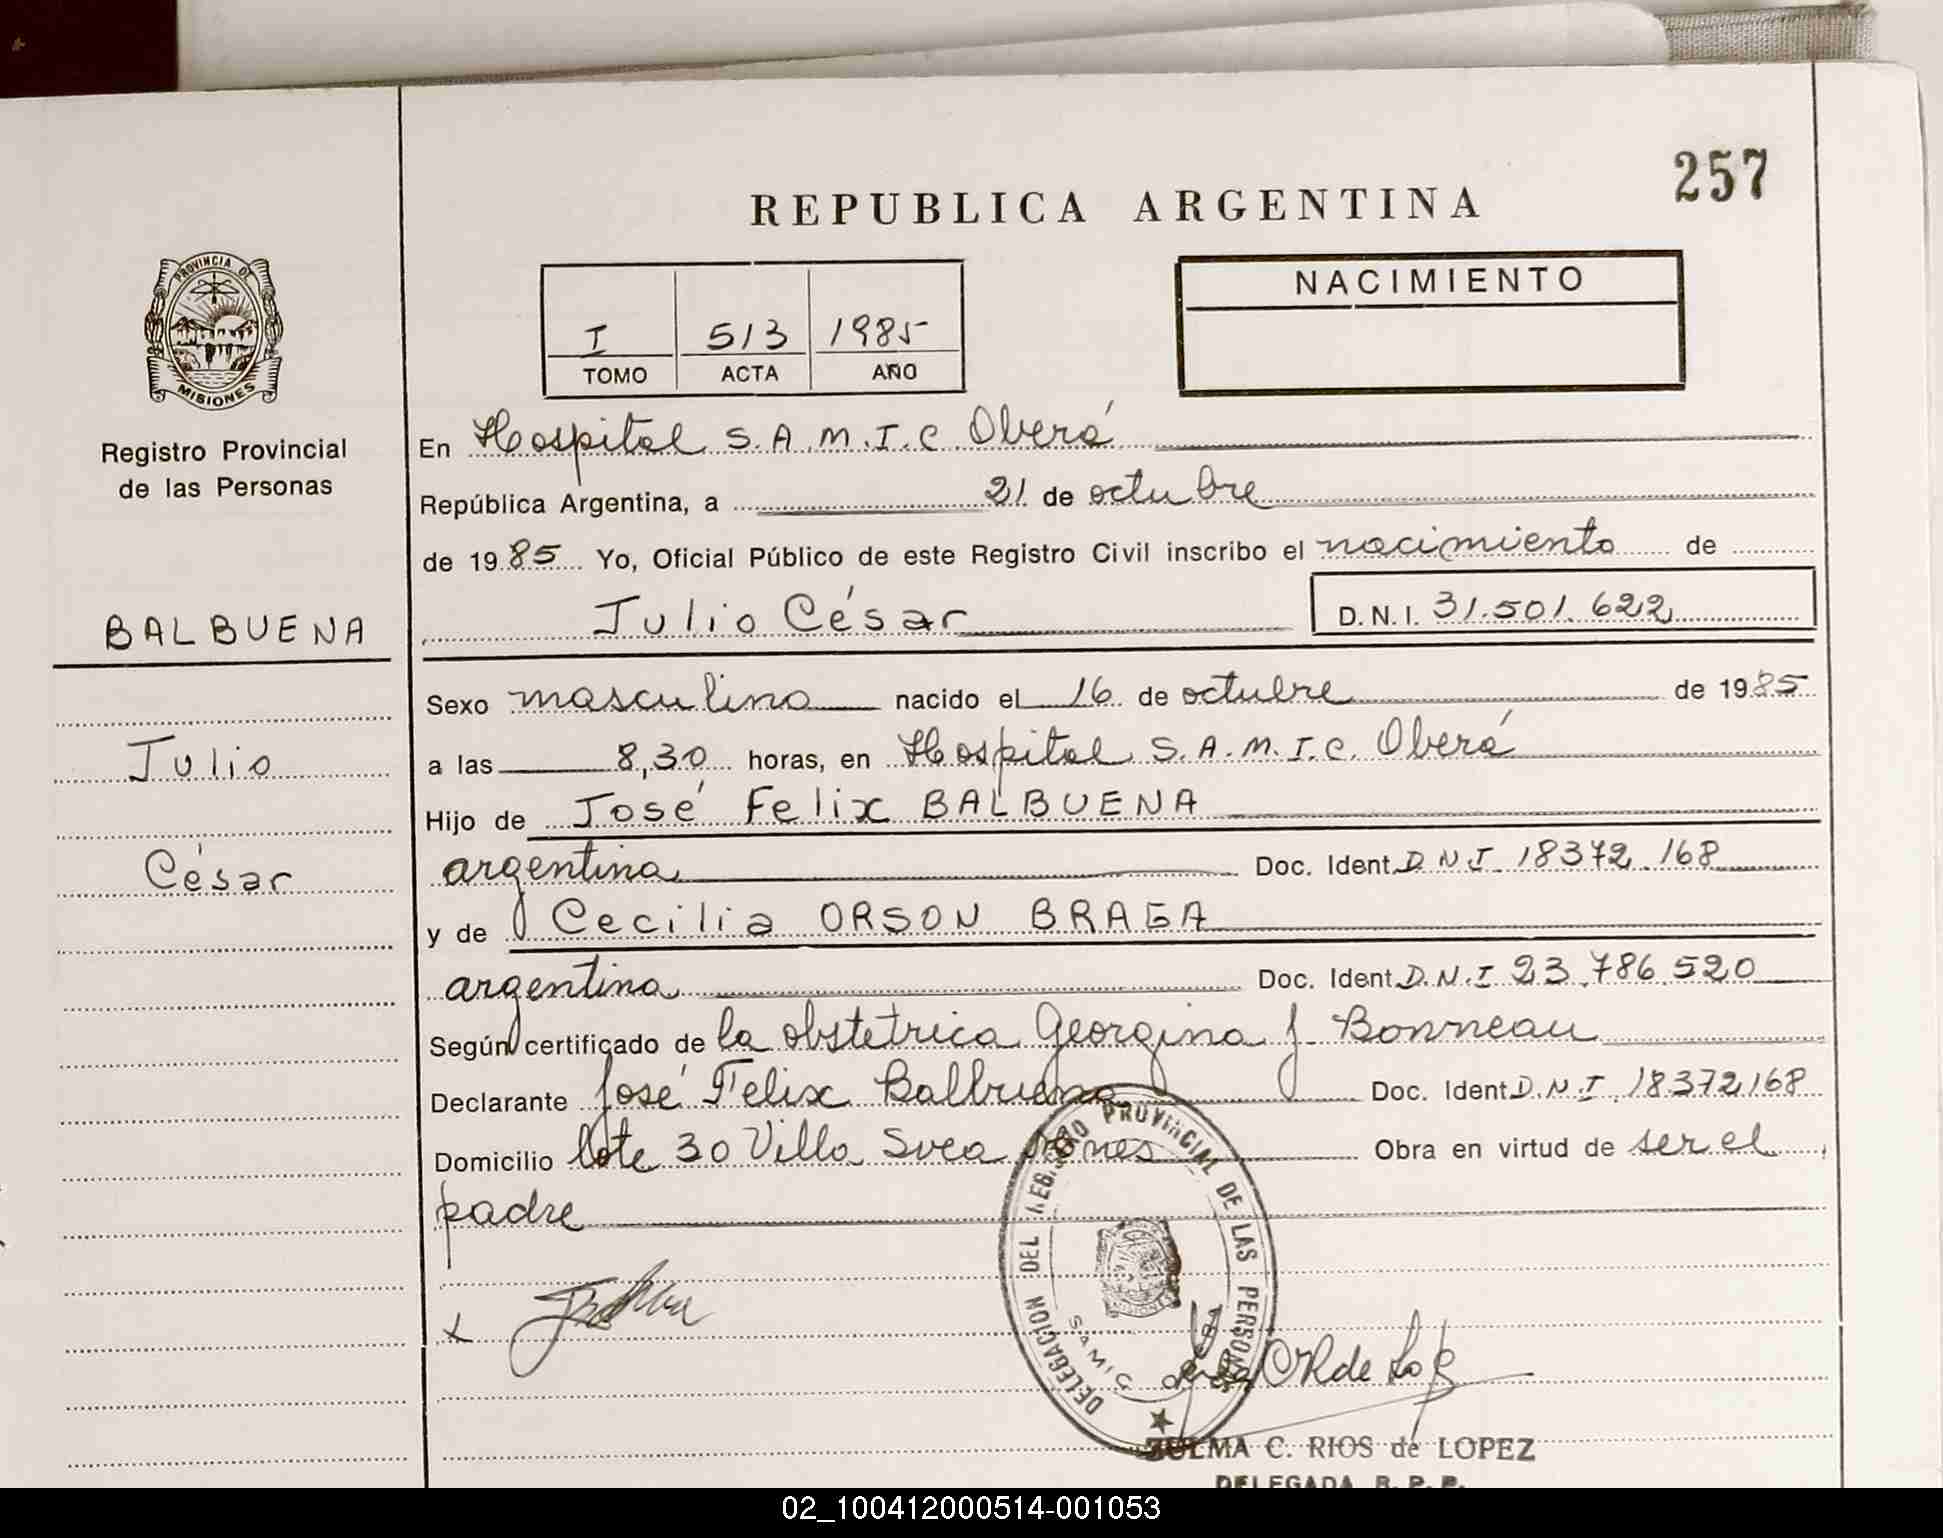 257
REPUBLICA ARGENTINA
PROVINCIA DE
MISIONES
Registro Provincial
de las Personas
I 513 1985
TOMO ACTA AÑO
NACIMIENTO
En Hospital S.A.M.I.C Oberá
República Argentina, a 21 de octubre
de 1985 Yo, Oficial Público de este Registro Civil inscribo el nacimiento de
BALBUENA
Julio César D.N.I. 31.501.622
Sexo masculino nacido el 16 de octubre de 1985
Julio
a las 8,30 horas, en Hospital S.A.M.I.C. Oberá
Hijo de José Felix BALBUENA
César
argentina Doc. Ident. D.N.I. 18372.168
y de Cecilia ORSON BRAGA
argentina Doc. Ident. D.N.I 23.786.520
Según certificado de la obstetrica Georgina J. Bonneau
Declarante José Felix Balbuena Doc. Ident. D.N.I. 18.372168
Domicilio lote 30 Villa Svea Mnes Obra en virtud de ser el
padre
DELEGACION DEL REGISTRO PROVINCIAL DE LAS PERSONAS
SAMIC OBERA
ZULMA C. RIOS de LOPEZ
DELEGADA R. P. P.
02_100412000514-001053